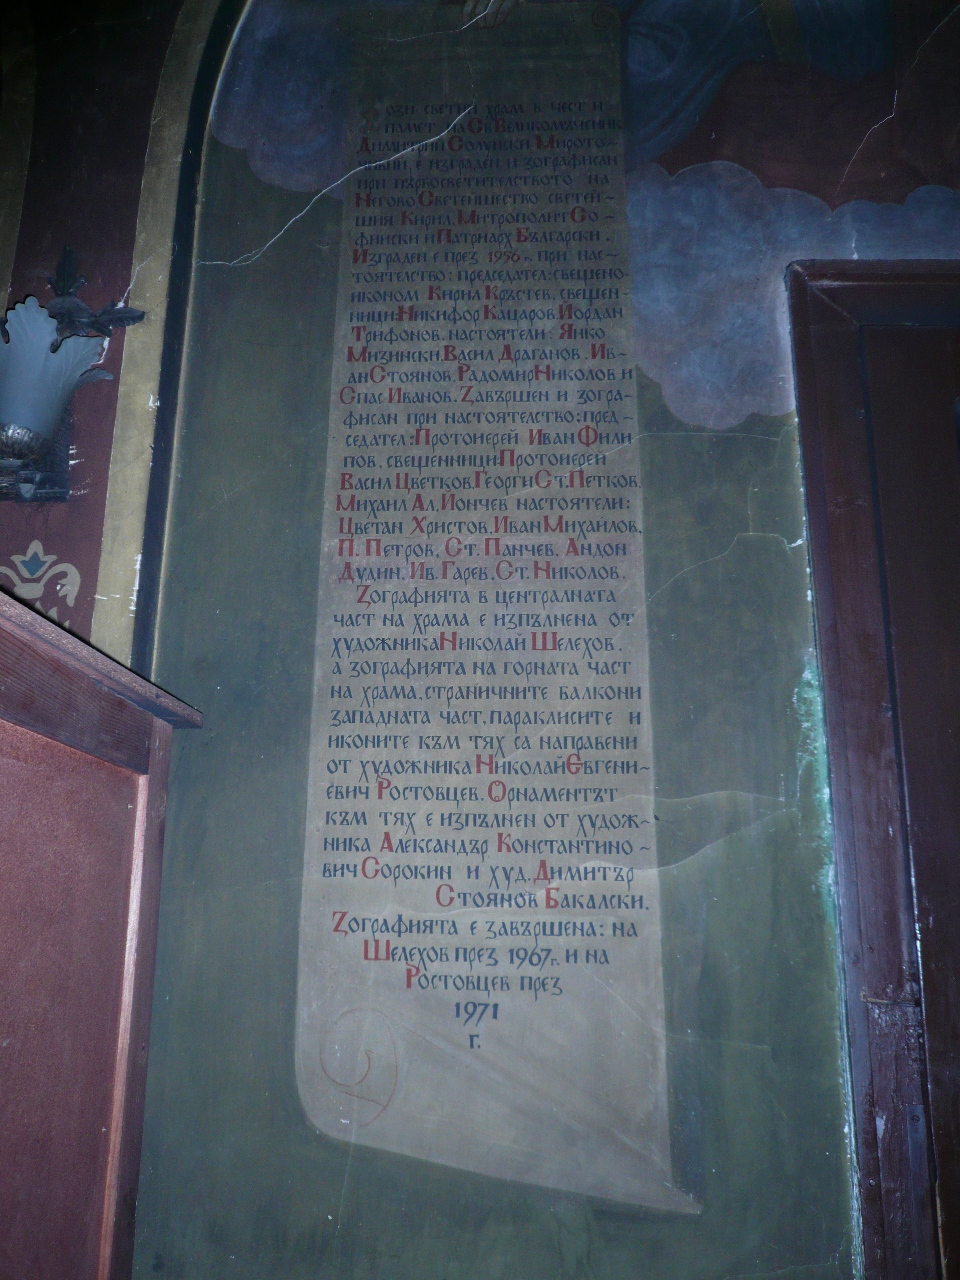 Този светий храм в чест и
памет на Св. Великомъченик
Димитрий Солунски Мирото-
чивий, е изграден и зографисан
при първосветителството на
Негово Светейшество светей-
шия Кирил, Митрополит Со-
фийски и Патриарх Български.
Изграден е през 1956 г. при нас-
тоятелство: председател: свещено-
иконом Кирил Кръстев, свещен-
ници: Никифор Кацаров, Йордан
Трифонов, настоятели: Янко
Мизински, Васил Драганов, Ив-
ан Стоянов, Радомир Николов и
Спас Иванов. Завършен и зогра-
фисан при настоятелство: пред-
седател: Протоиерей Иван Фили
пов, свещенници: Протоиерей
Васил Цветков, Георги Ст. Петков,
Михаил Ал. Йончев настоятели:
Цветан Христов, Иван Михайлов,
П. Петров, Ст. Панчев, Андон
Дудин, Ив. Гарев, Ст. Николов.
Зографията в централната
част на храма е изпълнена от
художника Николай Шелехов.
а зографията на горната част
на храма, страничните балкони
западната част, параклисите и
иконите към тях са направени
от художника Николай Евгени-
евич Ростовцев. Орнаментът
към тях е изпълнен от худож-
ника Александър Константино-
вич Сорокин и худ. Димитър
Стоянов Бакалски.
Зографията е завършена: на
Шелехов през 1967 г. и на
Ростовцев през
1971
г.